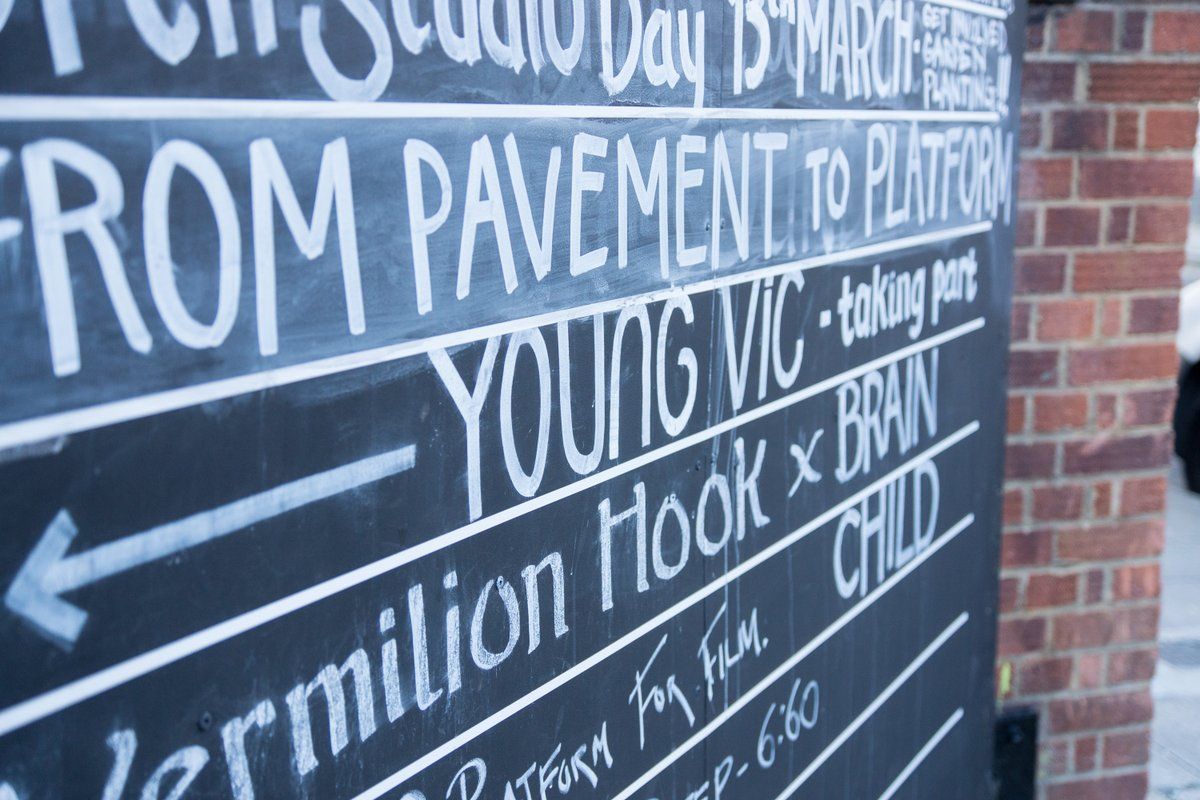 Studio Day 13th MARCH · GET INVOLVED
GARDEN
PLANTING!!!
FROM PAVEMENT TO PLATFORM
YOUNG VIC - taking part
Vermilion HOOK x BRAIN
CHILD
PLATFORM FOR FILM.
- 6:60